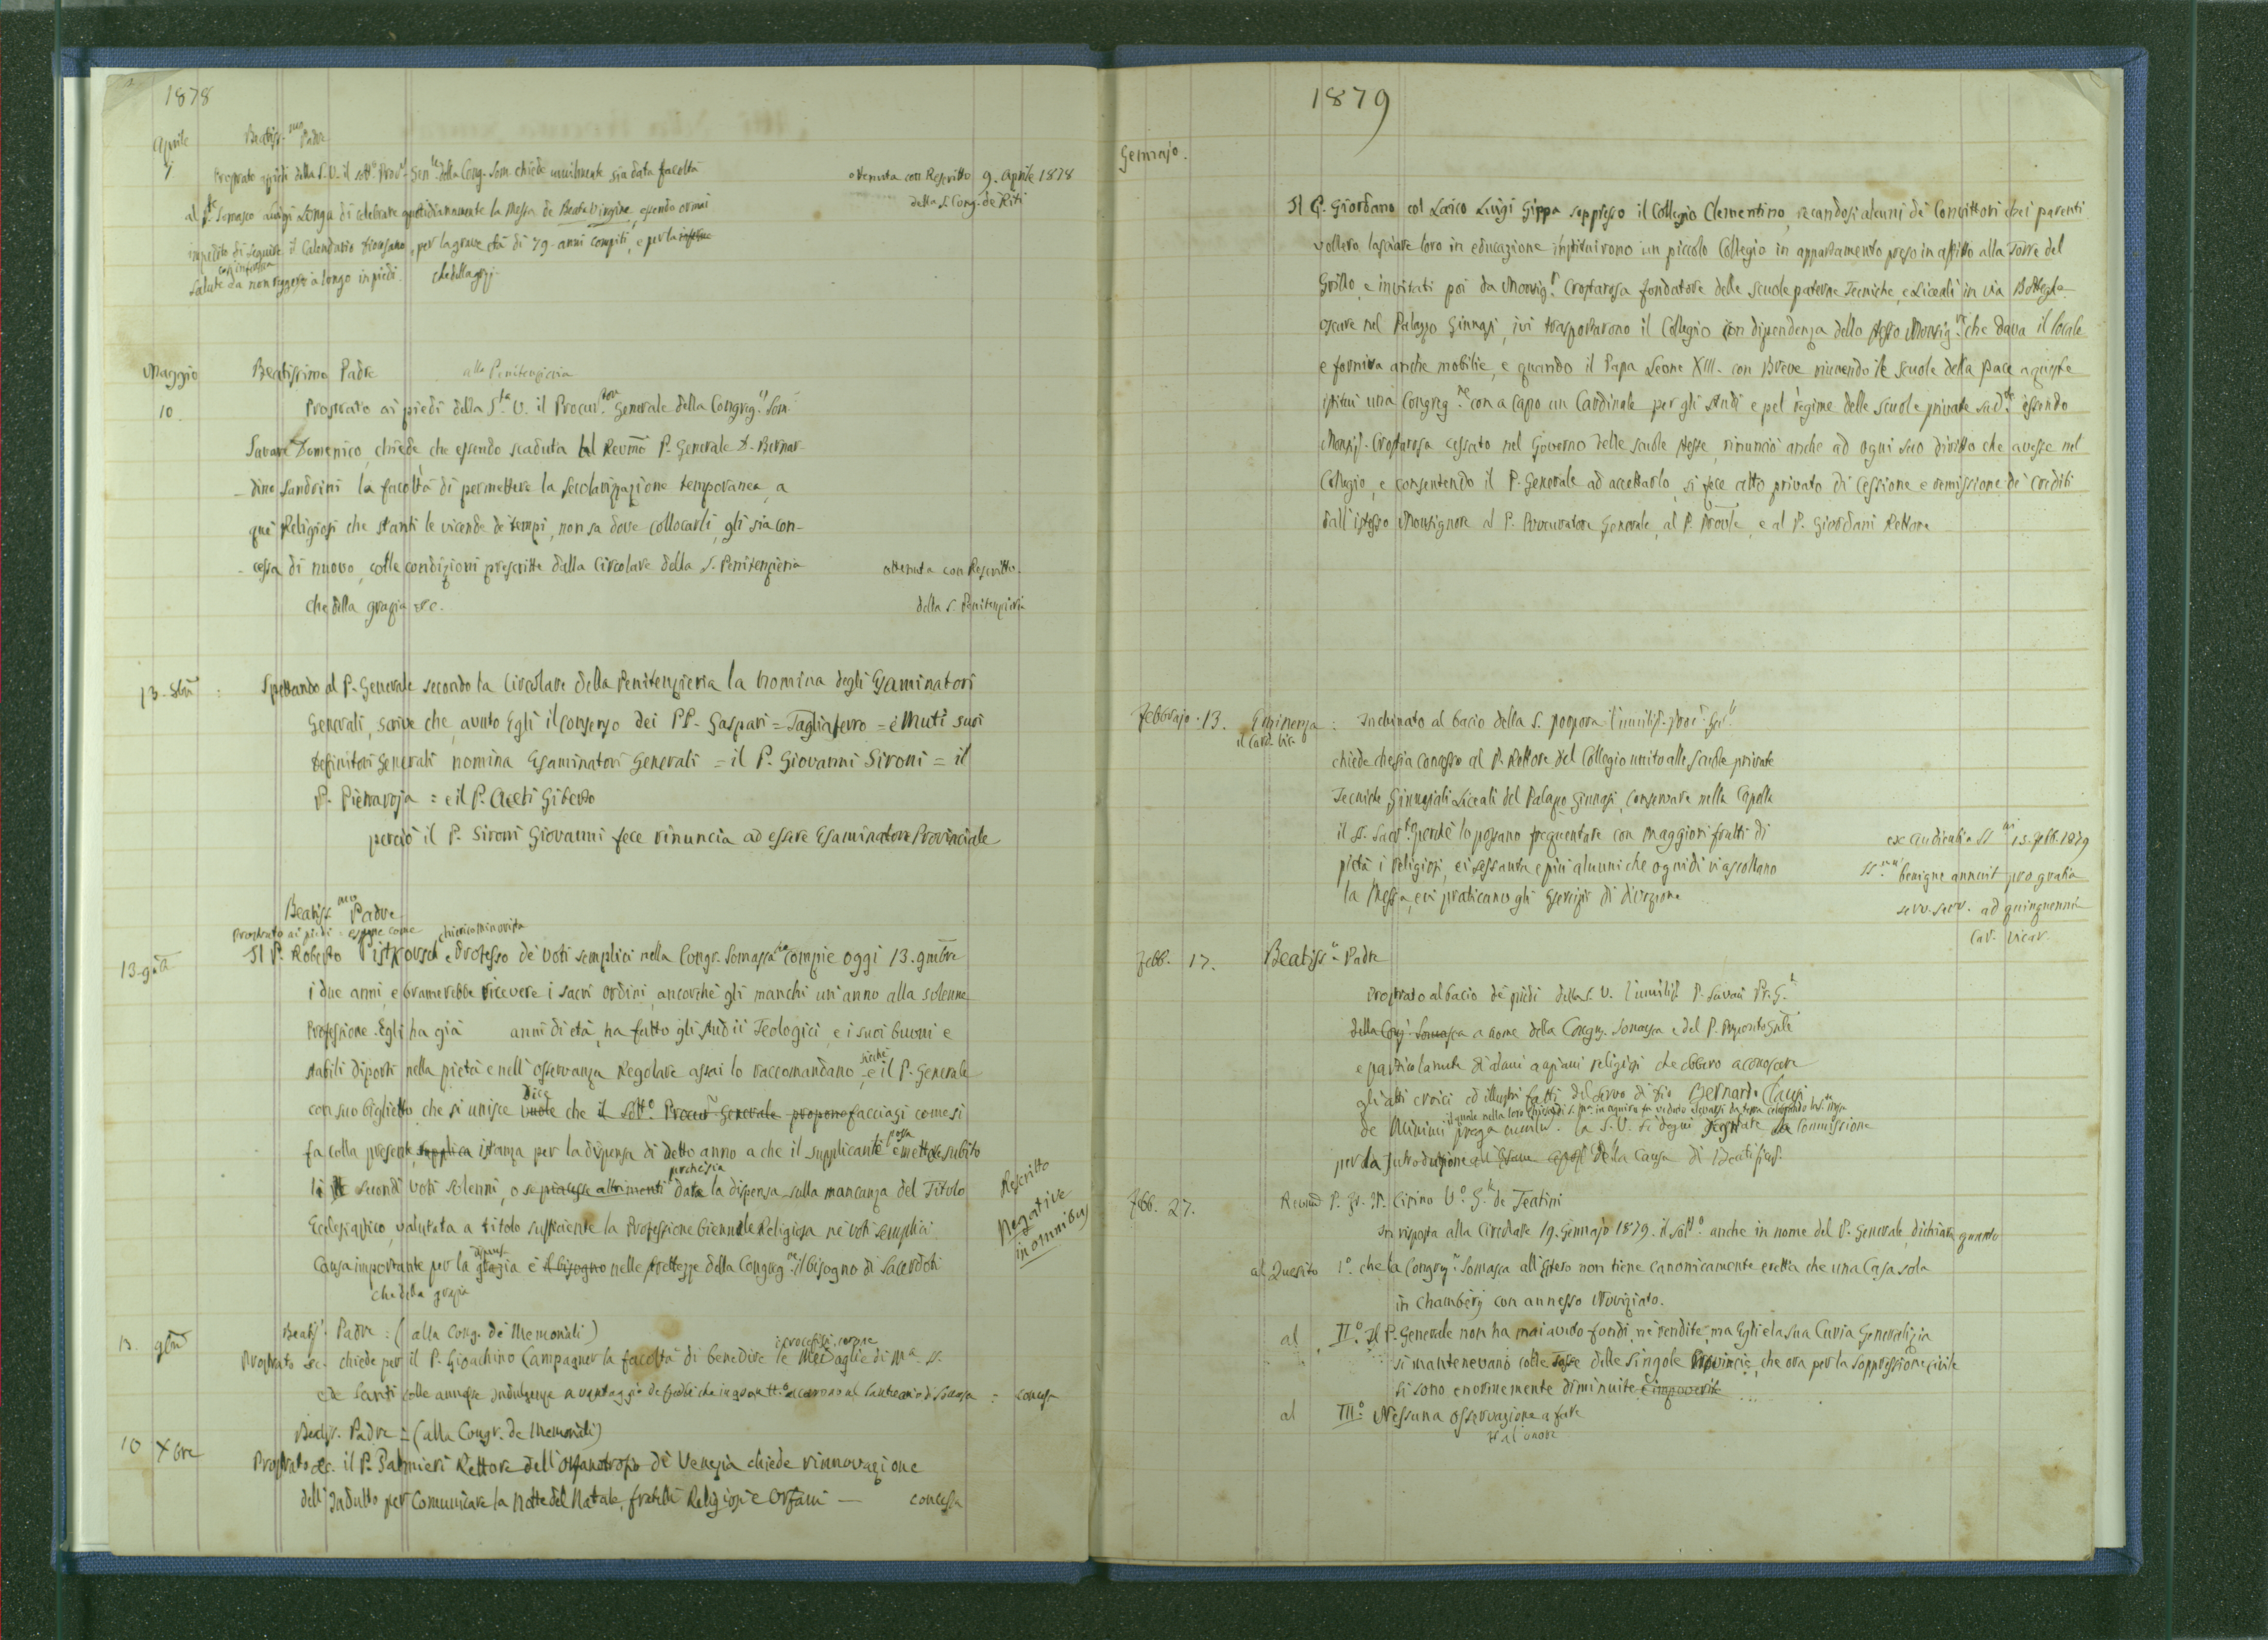 1878
Aprile
Beatiss.mo Padre
7 Prostrato ai piedi della S. V. il sott.o Proc.r Gen.le della Cong. Som. chiede umilmente sia data facoltà
al P. Somasco Luigi Longa di celebrare quotidianamente la Messa de Beata Virgine, essendo ormai
impedito di seguire il Calendario diocesano, per la grave età di 79 anni compiti, e per la
cosi inferma
salute da non reggersi a longo in piedi. che della graz.
ottenuta con Rescritto 9. Aprile 1878
della S. Cong. de Riti
Maggio Beatissimo Padre alla Penitenzieria
10. Prostrato ai piedi della S.tà V. il Procur.tore Generale della Congreg. Som.
Savarè Domenico, chiede, che essendo scaduta al Revmo P. Generale D. Bernar-
-dino Sandrini la facoltà di permettere la secolarizzazione temporanea, a
quei Religiosi che stanti le vicende de tempi, non sa dove collocarli, gli sia con-
-cessa di nuovo, colle condizioni prescritte dalla Circolare della S. Penitenzieria
che della grazia etc.
ottenuta con Rescritto
della S. Penitenzieria
13. : Spettando al P. Generale secondo la Circolare della Penitenzieria la nomina degli Esaminatori
Generali, scrive che, avuto Egli il consenso dei PP. Gaspari = Tagliaferro = e Muti suoi
Definitori Generali nomina Esaminatori Generali = il P. Giovanni Sironi = il
P. Pietraroja = e il P. Aceti Giberto
perciò il P. Sironi Giovanni fece rinuncia ad essere Esaminatore Provinciale
Beatiss.mo Padre
Prostrato ai piedi espone come chierico minorista
13. Il P. Roberto professo de voti semplici nella Congr. Somasca compie oggi 13. 9mbre
i due anni, e bramerebbe ricevere i sacri ordini, ancorchè gli manchi un'anno alla solenne
Professione. Egli ha già anni di età, ha fatto gli studii Teologici, e i suoi buoni e
stabili diporti nella pietà e nell'osservanza Regolare assai lo raccomandano, e sicchè il P. Generale
con suo biglietto che si unisce vuole dice che il Sott.o Procur Generale propone facciasi come si
fa colla presente supplica istanza per la dispensa di detto anno a che il supplicante possa emettere subito
li secondi voti solenni, o se piacesse altrimenti perchè sia data la dispensa sulla mancanza del Titolo
Ecclesiastico, valutata a titolo sufficiente la Professione biennale Religiosa ne voti semplici.
Causa importante per la grazia dispens. è il bisogno nelle strettezze della Congreg.ne il bisogno di Sacerdoti
che della grazia
Rescritto
Negative
in omnibus
Beatis. Padre : (alla Cong. de Memoriali)
13. Prostrato etc. chiede per il P. Gioachino Campagner la facoltà di benedire i crocefissi, corone le Medaglie di M.a S.
e de Santi colle annesse Indulgenze a vantaggio de fedeli che accorrono al Santuario di Somasca = concessa
Beatiss. Padre = (alla Congr. de Memoriali)
10 Xbre Prostrato etc. il P. Palmieri Rettore dell'orfanotrofio di Venezia chiede rinnovazione
dell'Indulto per comunicare la notte del Natale, fratelli Religiosi e Orfani — concessa
1879
Gennajo.
Il P. Giordano col Laico Luigi Gippa soppresso il Collegio Clementino, recandosi alcuni de Convittori dei parenti
vollero lasciare loro in educazione instituirono un piccolo Collegio in appartamento preso in affitto alla Torre del
Grillo, e invitati poi da Monsig.r Crostarosa fondatore delle scuole paterne Tecniche, e Liceali in via Botteghe
oscure nel Palazzo Ginnasi, ivi trasportarono il Collegio con dipendenza dello stesso Monsig.r che dava il locale
e forniva anche mobilie, e quando il Papa Leone XIII. con Breve riunendo le scuole della Pace a queste
istituì una Congreg.ne con a Capo un Cardinale per gli studi e pel regime delle scuole private sud.te essendo
Monsig. Crostarosa cessato nel Governo delle scuole stesse, rinunciò anche ad ogni suo diritto che avesse nel
Collegio, e consentendo il P. Generale ad accettarlo, si fece atto privato di Cessione e remissione de crediti
dall'istesso Monsignore al P. Procuratore Generale, al P. Prov.le, e al P. Giordani Rettore
Febbrajo. 13. Eminenza : Inchinato al bacio della S. porpora l'umilis. Proc. Gen.le
il Card. Vic.
chiede che sia concesso al P. Rettore del Collegio unito alle Scuole private
Tecniche, Ginnasiali Liceali del Palazzo Ginnasi, conservare nella Capella
il S. Sacr.to perchè lo possano frequentare con maggiori frutti di
pietà i religiosi, ei sessanta e più alunni che ogni dì vi ascoltano
la Messa, e vi praticano gli Esercizii di divozione
ex Audientia SS.mi 15. Febb. 1879
SS.mus benigne annuit pro gratia
serv. serv. ad quinquennium
Car. Vicar.
Febb. 17. Beatiss.o Padre
Prostrato al bacio de piedi della S. V. l'umilis. P. Savarè Pr. G.le
della Cong. Somasca a nome della Congreg. Somasca e del P. Preposito Gnle
e particolarmente di alcuni anziani religiosi che ebbero a conoscere
gli atti eroici ed illustri fatti del Servo di Dio Bernardo Clausi
il quale nella loro chiesa di S. M.a in Aquiro fu veduto elevarsi da terra celebrando la S. Messa
de Minimi prega umilm. la S. V. si degni segnare la Commissione
per la Introduzione della Causa di Beatific.
Febb. 27. Revmo P. D. Cirino V.o G.le de Teatini
In risposta alla Circolare 19. Gennajo 1879. il sott.o anche in nome del P. Generale, dichiara quanto
al Quesito 1.o che la Congreg.ne Somasca all'Estero non tiene canonicamente eretta che una Casa sola
in Chambéry con annesso Noviziato.
al II.o Il P. Generale non ha mai avuto fondi, nè rendite, ma Egli e la sua Curia Generalizia
si mantenevano colle Tasse delle singole Provincie, che ora per la soppressione civile
si sono enormemente diminuite e impoverite
al III.o Nessuna osservazione a fare
Ho l'onore